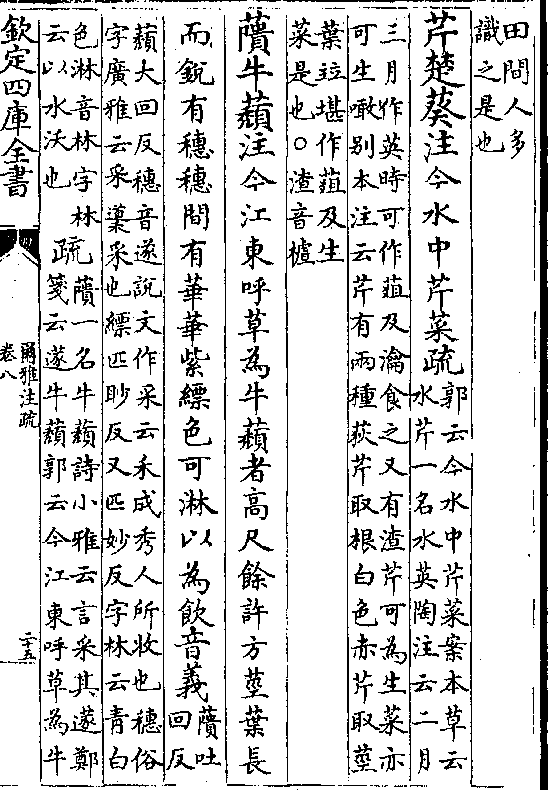 田間人多
識之是也
芹楚葵注今水中芹菜疏
郭云今水中芹菜案本草云
水芹一名水英陶注云二月
三月作英時可作葅及瀹食之又有渣芹可為生菜亦
可生噉别本注云芹有兩種荻芹取根白色赤芹取莖
葉竝堪作葅及生
菜是也○渣音樝
藬牛蘈注今江東呼草為牛蘈者高尺餘許方莖葉長
而鋭有穗穗間有華華紫縹色可淋以為飲音義
藬吐
回反
蘈大回反穗音遂説文作采云禾成秀人所收也穗俗
字廣雅云采䕯采也縹匹眇反又匹妙反字林云青白
色淋音林字林
云以水沃也
疏
藬一名牛蘈詩小雅云言采其蓫鄭
箋云蓫牛蘈郭云今江東呼草為牛
欽定四庫全書
爾雅注疏
卷八
二十五